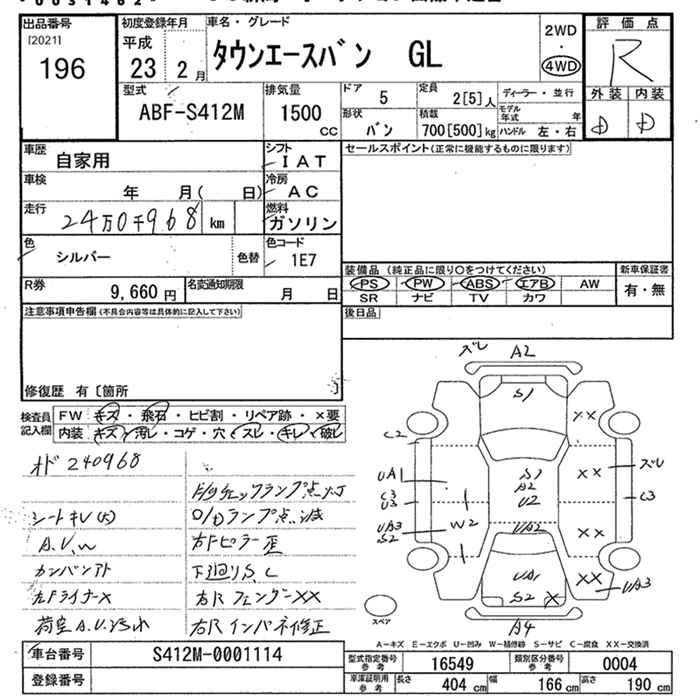 出品番号
[2021]
196
初度登録年月
平成
23 2 月
車名・グレード
タウンエースバン GL
2WD
・
4WD
評価点
R
外装 内装
D D
型式
ABF-S412M
排気量
1500
cc
ドア
5
定員
2[5]人
ディーラー・並行
形状
バン
積載
700[500]kg
モデル年式 年
ハンドル 左・右
車歴
自家用
シフト
IAT
セールスポイント(正常に機能するものに限ります)
車検
年 月( 日)
冷房
AC
走行
24万0千968 km
燃料
ガソリン
色
シルバー
色替
色コード
1E7
装備品(純正品に限り○をつけてください)
新車保証書
PS PW ABS エアB AW
SR ナビ TV カワ
有・無
R券
9,660 円
名変通知期限
月 日
後日品
注意事項申告欄(不具合内容等は具体的に記入して下さい)
修復歴 有〔箇所 〕
検査員記入欄
FW キズ・飛石・ヒビ割・リペア跡・×要
内装 キズ・汚レ・コゲ・穴・スレ・キレ・破レ
オド 240968
シートキレ(大)
A.U,W
O/Dランプ点滅
右Fピラー歪
下廻りS,C
右Rフェンダー××
右Rインパネ修正
ズレ
A2
S1
××
C2
UA1
C3
U3
UA3
S2
W2
S1
A2
U2
××
ズレ
C3
UA2
××
UA1
S2 ×
××
UA3
A4
スペア
A-キズ E-エクボ U-凹み W-補修跡 S-サビ C-腐食 XX-交換済
車台番号
S412M-0001114
登録番号
型式指定番号
参考
16549
類別区分番号
参考
0004
車庫証明用
参考
長さ
404 cm
幅
166 cm
高さ
190 cm